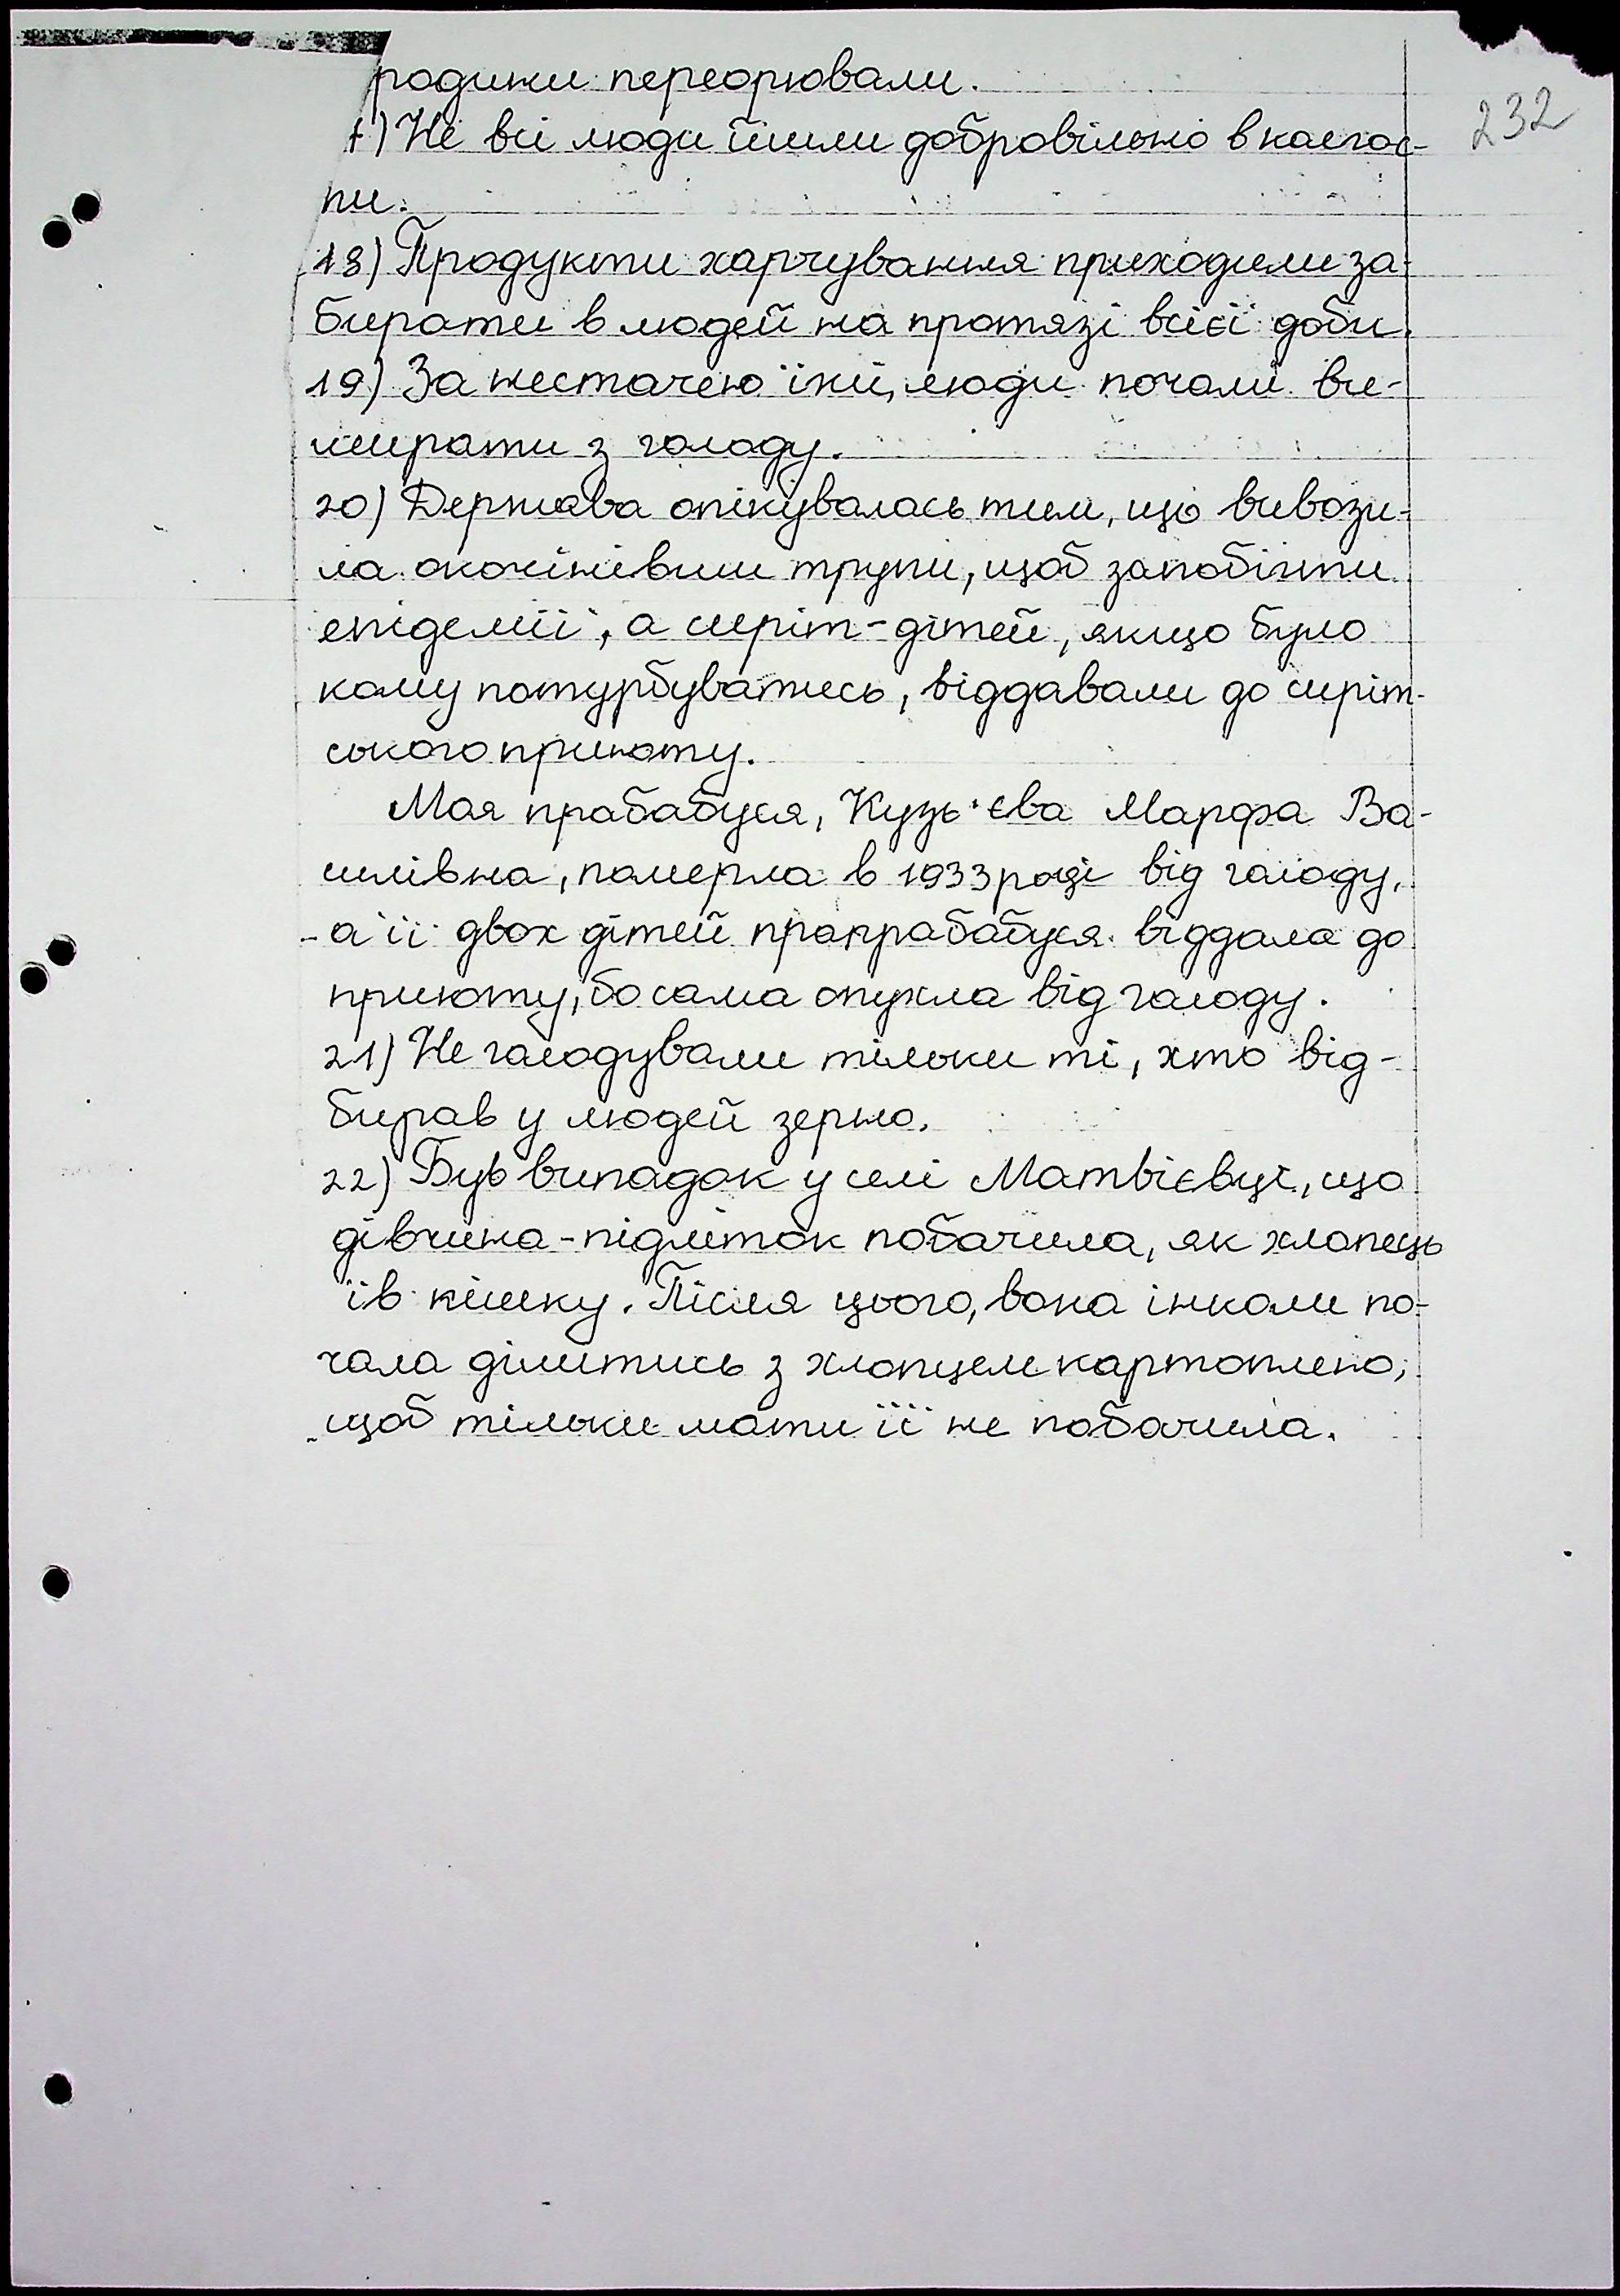 232
родини переорювали.
7) Не всі люди йшли добровільно в колгос-
пи.
18) Продукти харчування приходили за-
бирати в людей на протязі всієї доби.
19) За нестачею їжи, люди почали ви-
мирати з голоду.
20) Держава опікувалась тим, що вивози-
ла окочінівши трупи, щоб запобігти
епідемії, а сиріт-дітей, якщо було
кому потурбуватись, віддавали до сиріт-
ського приюту.
Моя прабабуся, Кузь'єва Марфа Ва-
силівна, померла в 1933 році від голоду,
а її двох дітей прапрабабуся віддала до
приюту, бо сама опухла від голоду.
21) Не голодували тільки ті, хто від-
бирав у людей зерно.
22) Був випадок у селі Матвієвці, що
дівчина-підліток побачила, як хлопець
їв кішку. Після цього, вона інколи по-
чала ділитись з хлопцем картоплею,
щоб тільки мати її не побачила.